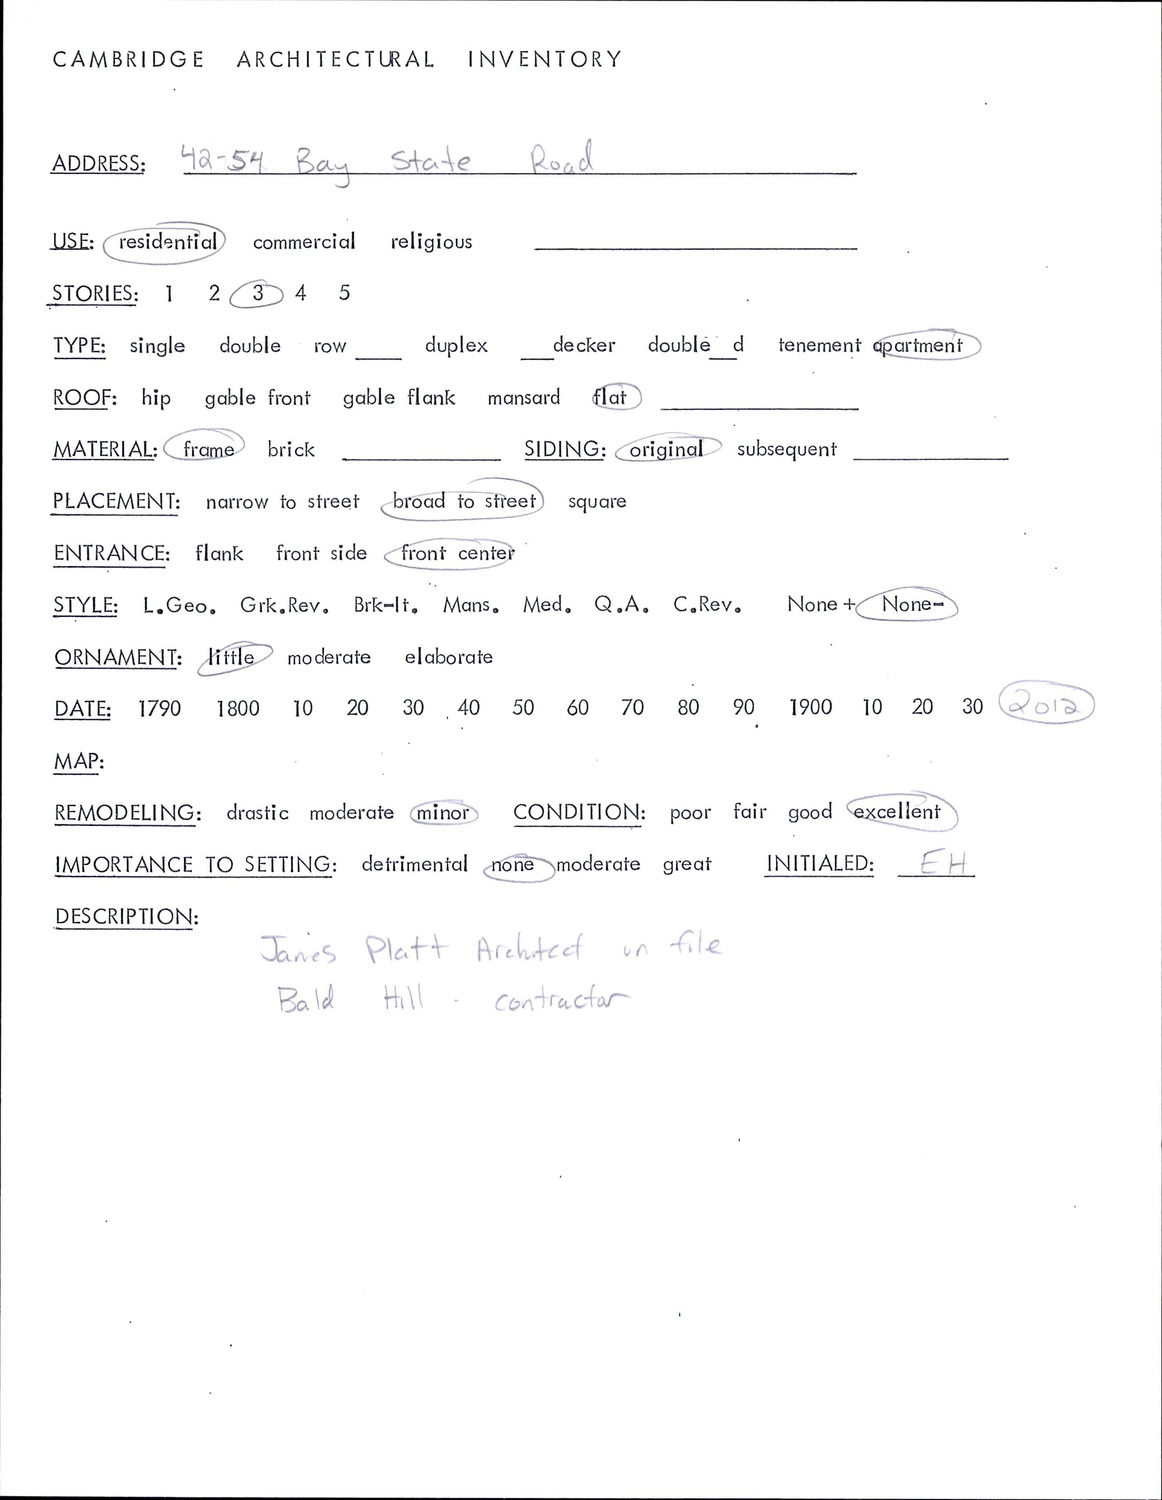 CAMBRIDGE ARCHITECTURAL INVENTORY
ADDRESS: 42-54 Bay State Road
USE: residential commercial religious
STORIES: 1 2 3 4 5
TYPE: single double row ___ duplex ___decker double __ d tenement apartment
ROOF: hip gable front gable flank mansard flat
MATERIAL: frame brick SIDING: original subsequent
PLACEMENT: narrow to street broad to street square
ENTRANCE: flank front side front center
STYLE: L.Geo. Grk.Rev. Brk-It. Mans. Med. Q.A. C.Rev. None + None-
ORNAMENT: little moderate elaborate
DATE: 1790 1800 10 20 30 40 50 60 70 80 90 1900 10 20 30 2012
MAP:
REMODELING: drastic moderate minor CONDITION: poor fair good excellent
IMPORTANCE TO SETTING: detrimental none moderate great INITIALED: EH
DESCRIPTION:
James Platt Architect on file
Bald Hill - contractor